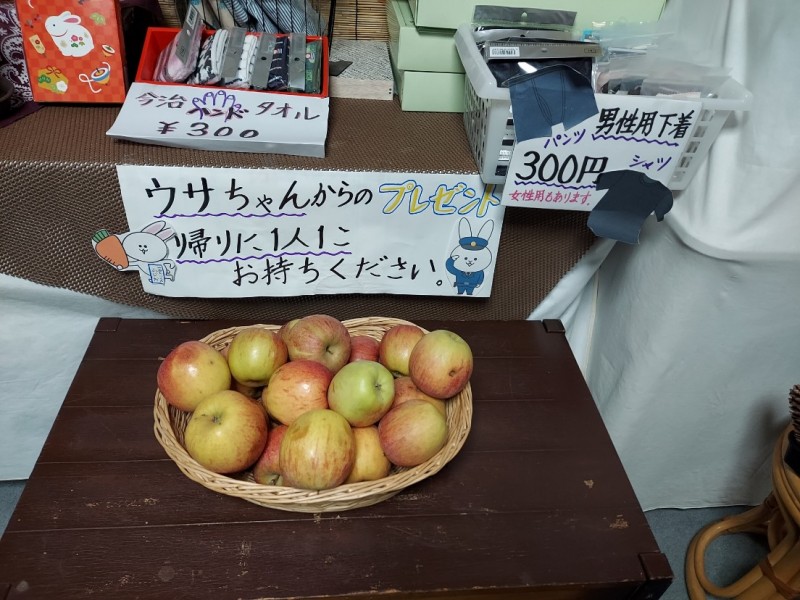 今治ハンドタオル
￥300
男性用下着
パンツ
300円 シャツ
女性用もあります。
ウサちゃんからのプレゼント
帰りに、1人1こ
お持ちください。